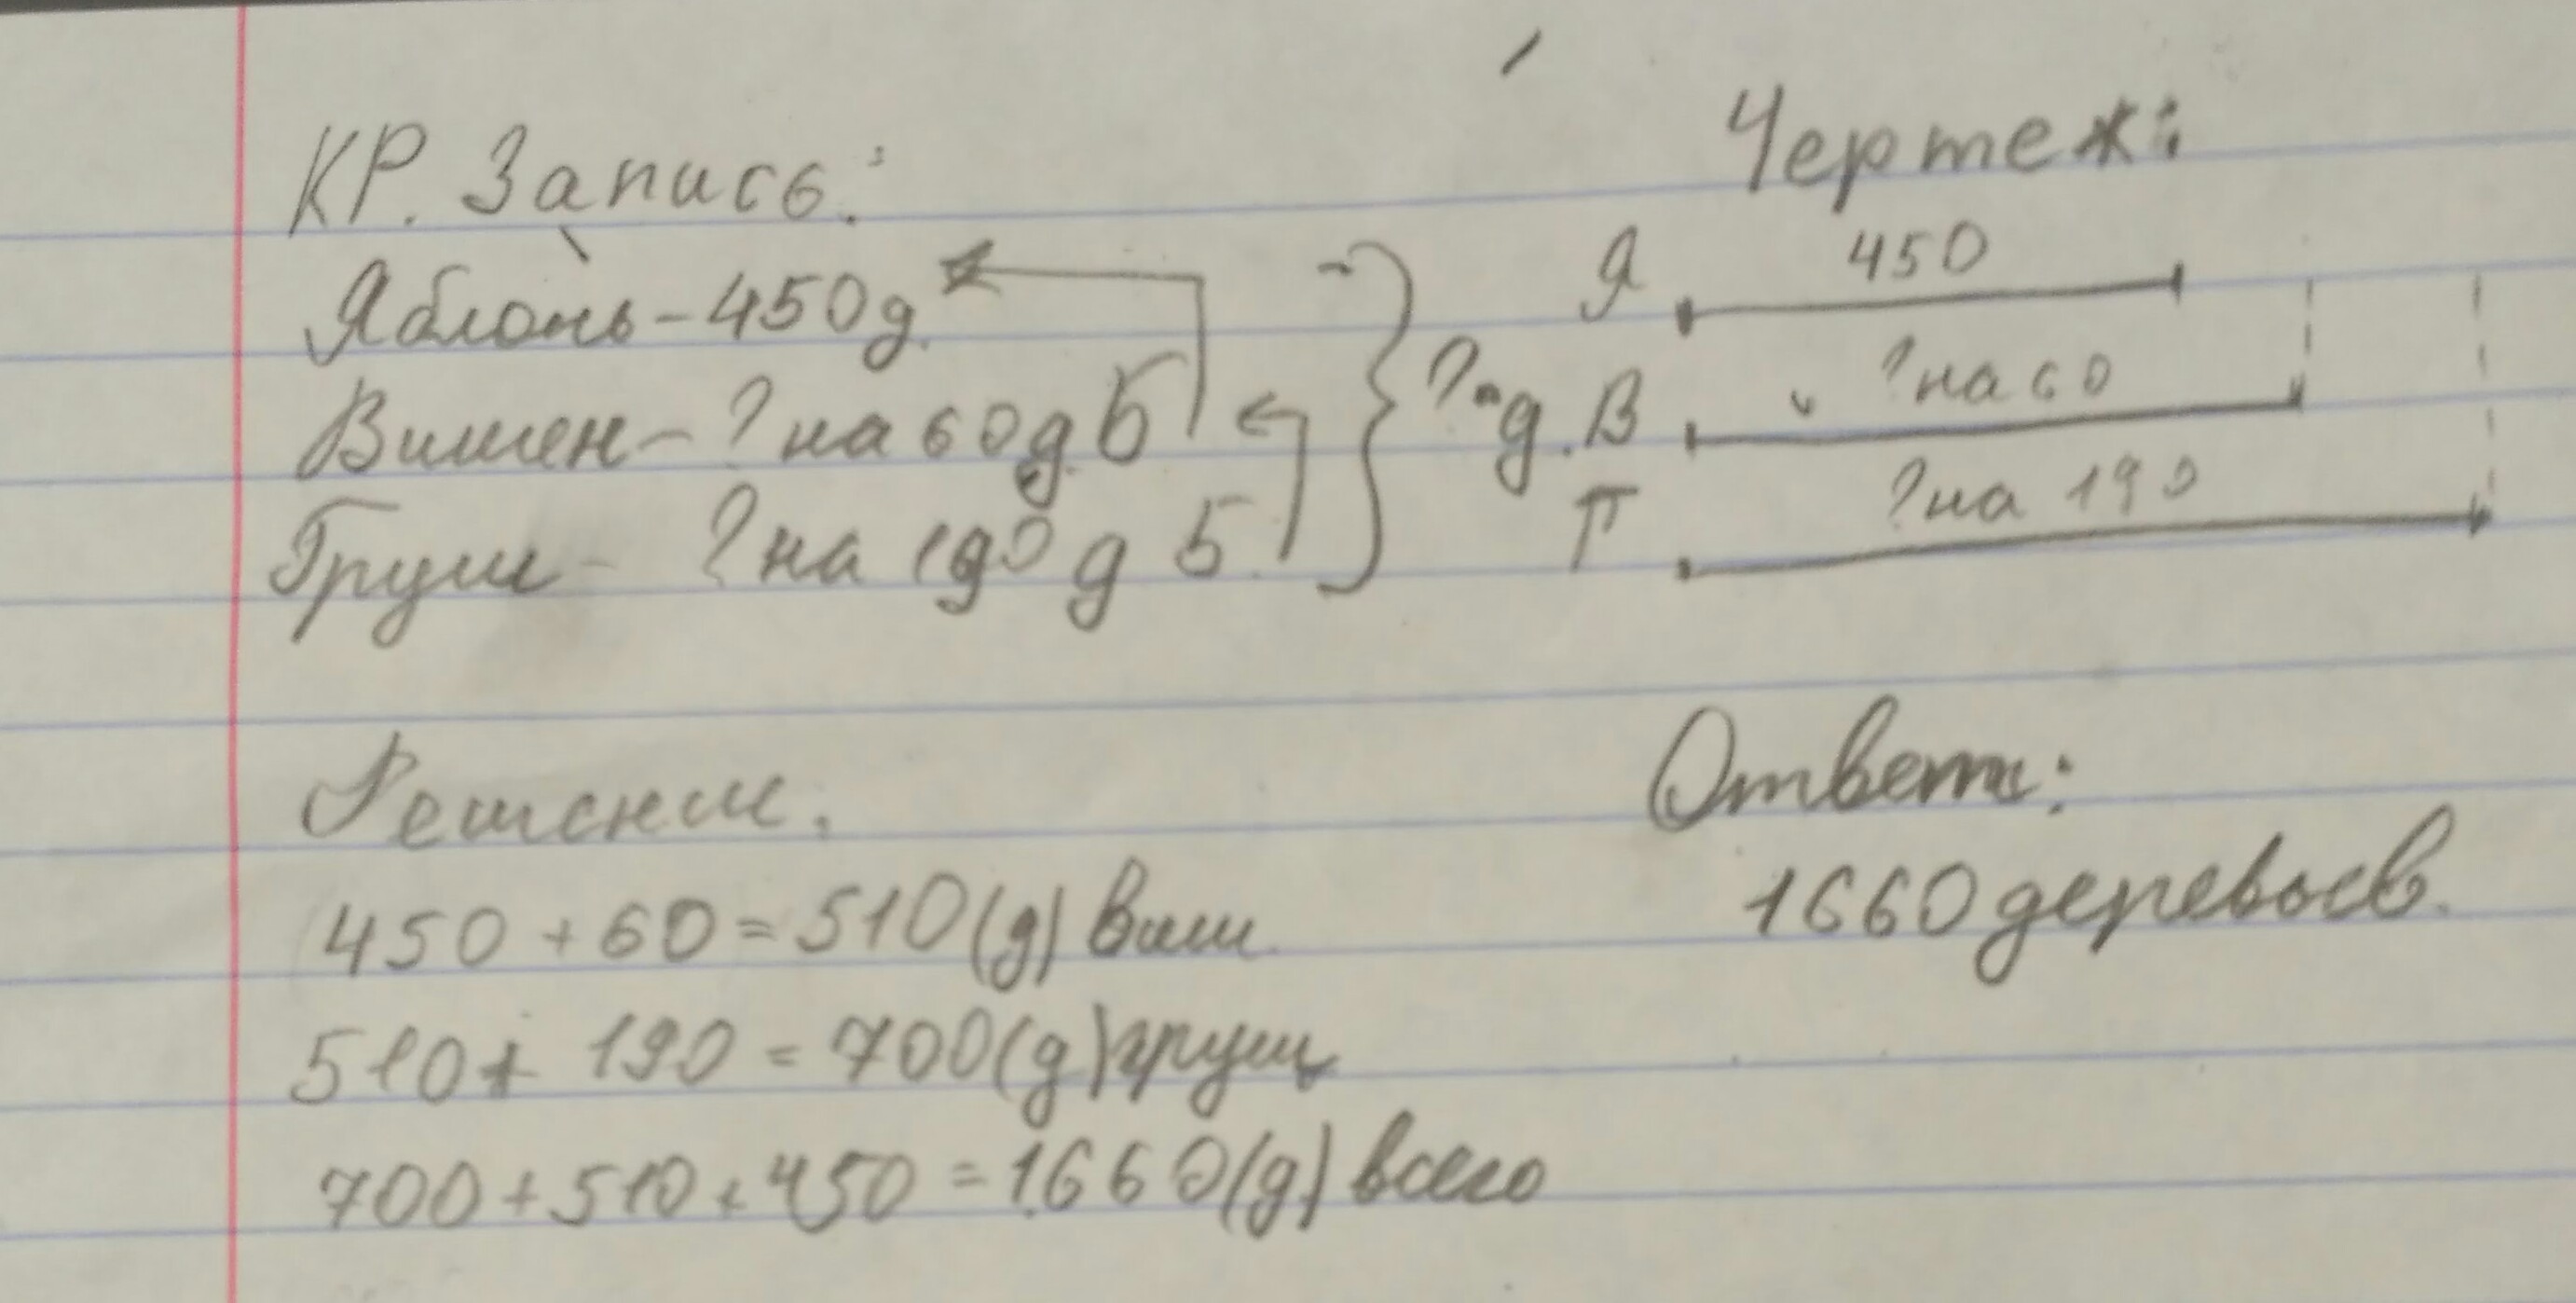 КР. Запись:
Яблонь - 450 д.
Вишен - ? на 60 д. Б
Груш - ? на 190 д Б.
? д.
Чертеж:
Я 450
В ? на 60
Г ? на 190
Решении.
450 + 60 = 510 (д) виш.
510 + 190 = 700 (д) груш
700 + 510 + 450 = 1660 (д) всего
Ответ:
1660 деревьев.